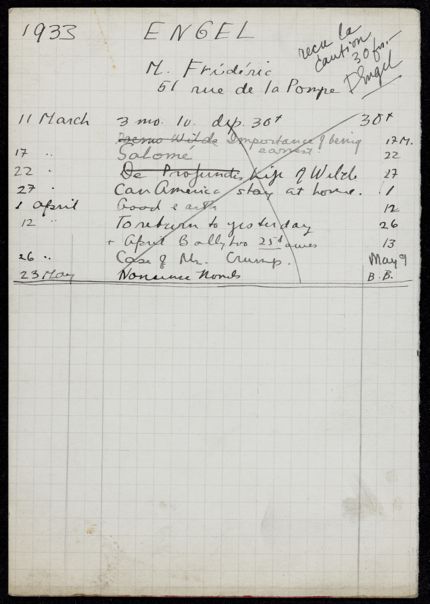 1933 ENGEL
recu la
caution
30 frs.-
Engel
M. Frédéric
61 rue de la Pompe
11 March 3 mo. 1v. dep. 30+ 30+
Wilde Importance of being earnest. 17 M.
17 " Salomé 22
22 " De Profundis Life of Wilde 27
27 " Can America stay at home. 1
1 April Good earth 12
12 To return to yesterday 26
+ April Ballyhoo 25d owes 13
26 " Case of Mr. Crump. May 9
23 May Nonsence Novels B.B.